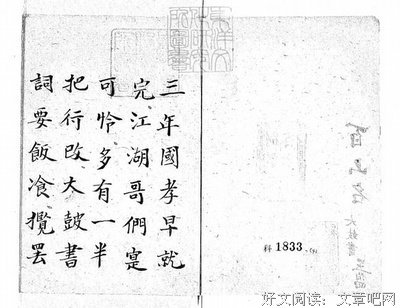 科 1833
三年國孝早就
完江湖哥們寔
可怜多有一半
把行改大鼓書
詞要飯飡攪罢
好文阅读：文章吧网